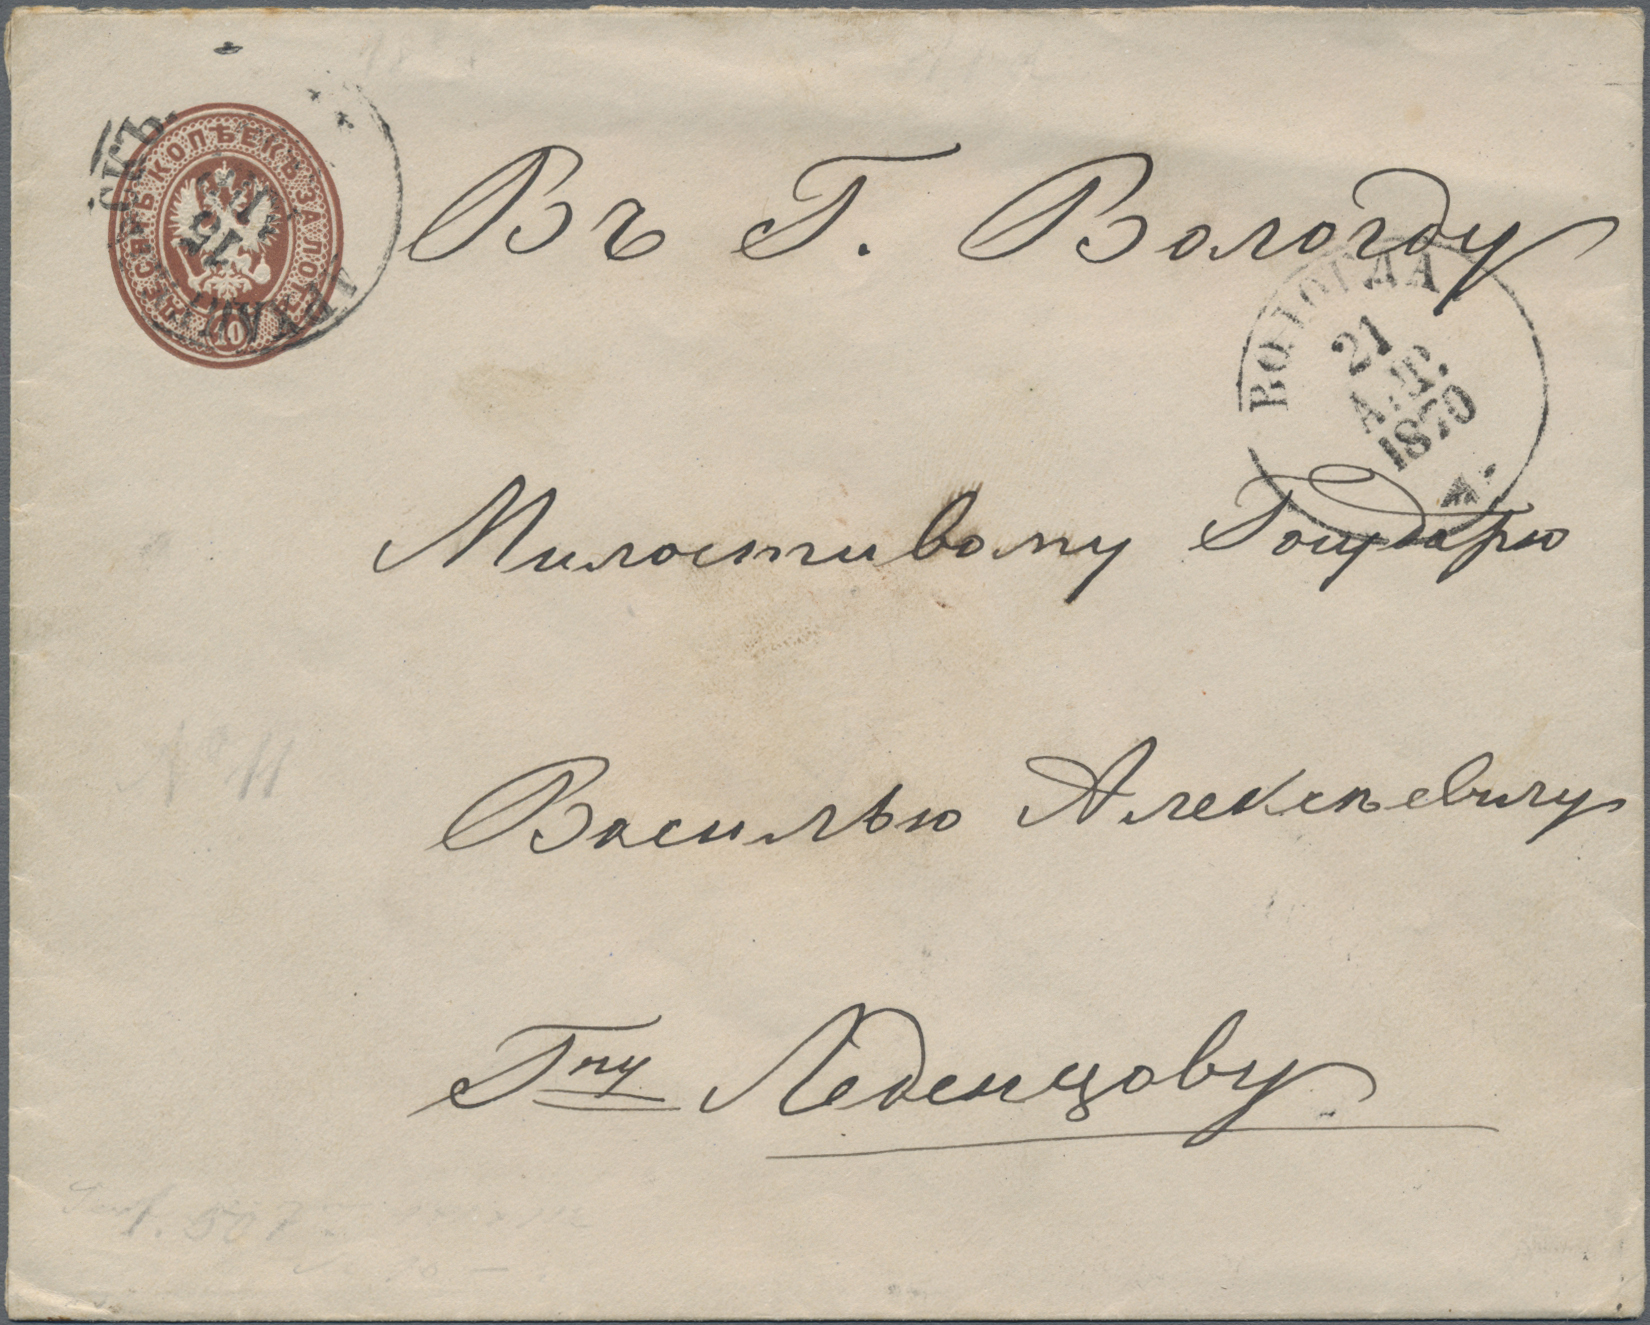 ДЕСЯТЬ КОПѢЕКЪ ЗА ЛОТЪ
10
15
Въ Г. Вологду
ВОЛОГДА
21
1870
Милостивому Государю
№ 11
Василью Алексѣевичу
Гну Леденцову